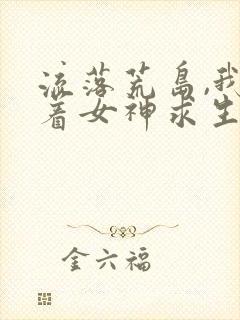 流落荒岛,我
着女神求生
金六福